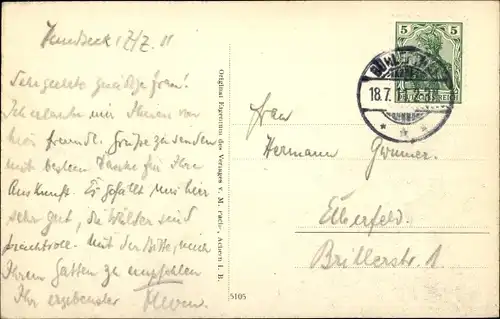 Hundseck 17/7. 11
Sehr geehrte gnädige Frau!
Ich erlaube mir Ihnen von
hier freundl. Grüße zu senden
mit bestem Danke für Ihre
Auskunft. Es gefällt uns hier
sehr gut, die Wälder sind
prachtvoll. Mit der Bitte, mich
Ihrem Gatten zu empfehlen
Ihr ergebenster
Original Eigentum des Verlages v. M. Achern i. B.
5105
5 5
18.7.
Frau
Hermann
Elberfeld.
Brillerstr. 1